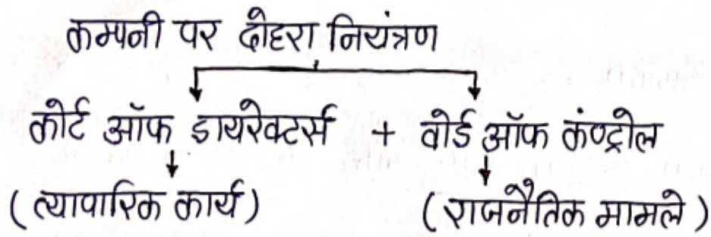 कम्पनी पर दोहरा नियंत्रण
कोर्ट ऑफ डायरेक्टर्स + बोर्ड ऑफ कंट्रोल
(व्यापारिक कार्य) (राजनैतिक मामले)